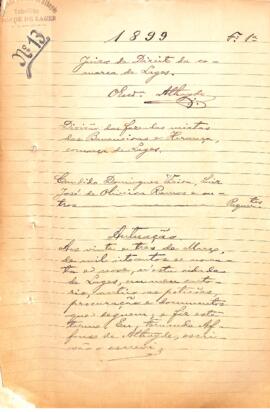 Tabellião
DE LAGES
Nº 13
1899
Fl. 1
Juizo de Direito da co-
marca de Lages.
Escr. Athayde
Divisão das fazendas mixtas
das Bananeiras e Herança,
comarca de Lages.
Candido Domingues Vieira, Luiz
José de Oliveira Ramos e ou-
tros
Reqtes
Autuação
Aos vinte e tres de Março,
de mil oitocentos e noven-
ta e nove, n'esta cidade
de Lages, em meu carto-
rio, autúo as petições,
procuração e documentos
que seguem; e fiz este
termo. Eu, Fernando Af-
fonso de Athayde, escri-
vão o escrevi.